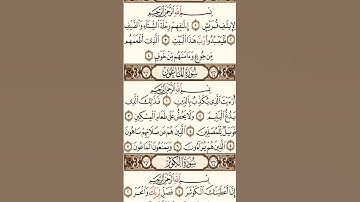 بِسْمِ اللَّهِ الرَّحْمَٰنِ الرَّحِيمِ
لِإِيلَافِ قُرَيْشٍ ١ إِيلَافِهِمْ رِحْلَةَ الشِّتَاءِ وَالصَّيْفِ
٢ فَلْيَعْبُدُوا رَبَّ هَٰذَا الْبَيْتِ ٣ الَّذِي أَطْعَمَهُم
مِّن جُوعٍ وَآمَنَهُم مِّنْ خَوْفٍ ٤
سُورَةُ الْمَاعُونِ
بِسْمِ اللَّهِ الرَّحْمَٰنِ الرَّحِيمِ
أَرَءَيْتَ الَّذِي يُكَذِّبُ بِالدِّينِ ١ فَذَٰلِكَ الَّذِي
يَدُعُّ الْيَتِيمَ ٢ وَلَا يَحُضُّ عَلَىٰ طَعَامِ الْمِسْكِينِ ٣
فَوَيْلٌ لِّلْمُصَلِّينَ ٤ الَّذِينَ هُمْ عَن صَلَاتِهِمْ سَاهُونَ
٥ الَّذِينَ هُمْ يُرَاءُونَ ٦ وَيَمْنَعُونَ الْمَاعُونَ ٧
سُورَةُ الْكَوْثَرِ
بِسْمِ اللَّهِ الرَّحْمَٰنِ الرَّحِيمِ
إِنَّا أَعْطَيْنَاكَ الْكَوْثَرَ ١ فَصَلِّ لِرَبِّكَ وَانْحَرْ